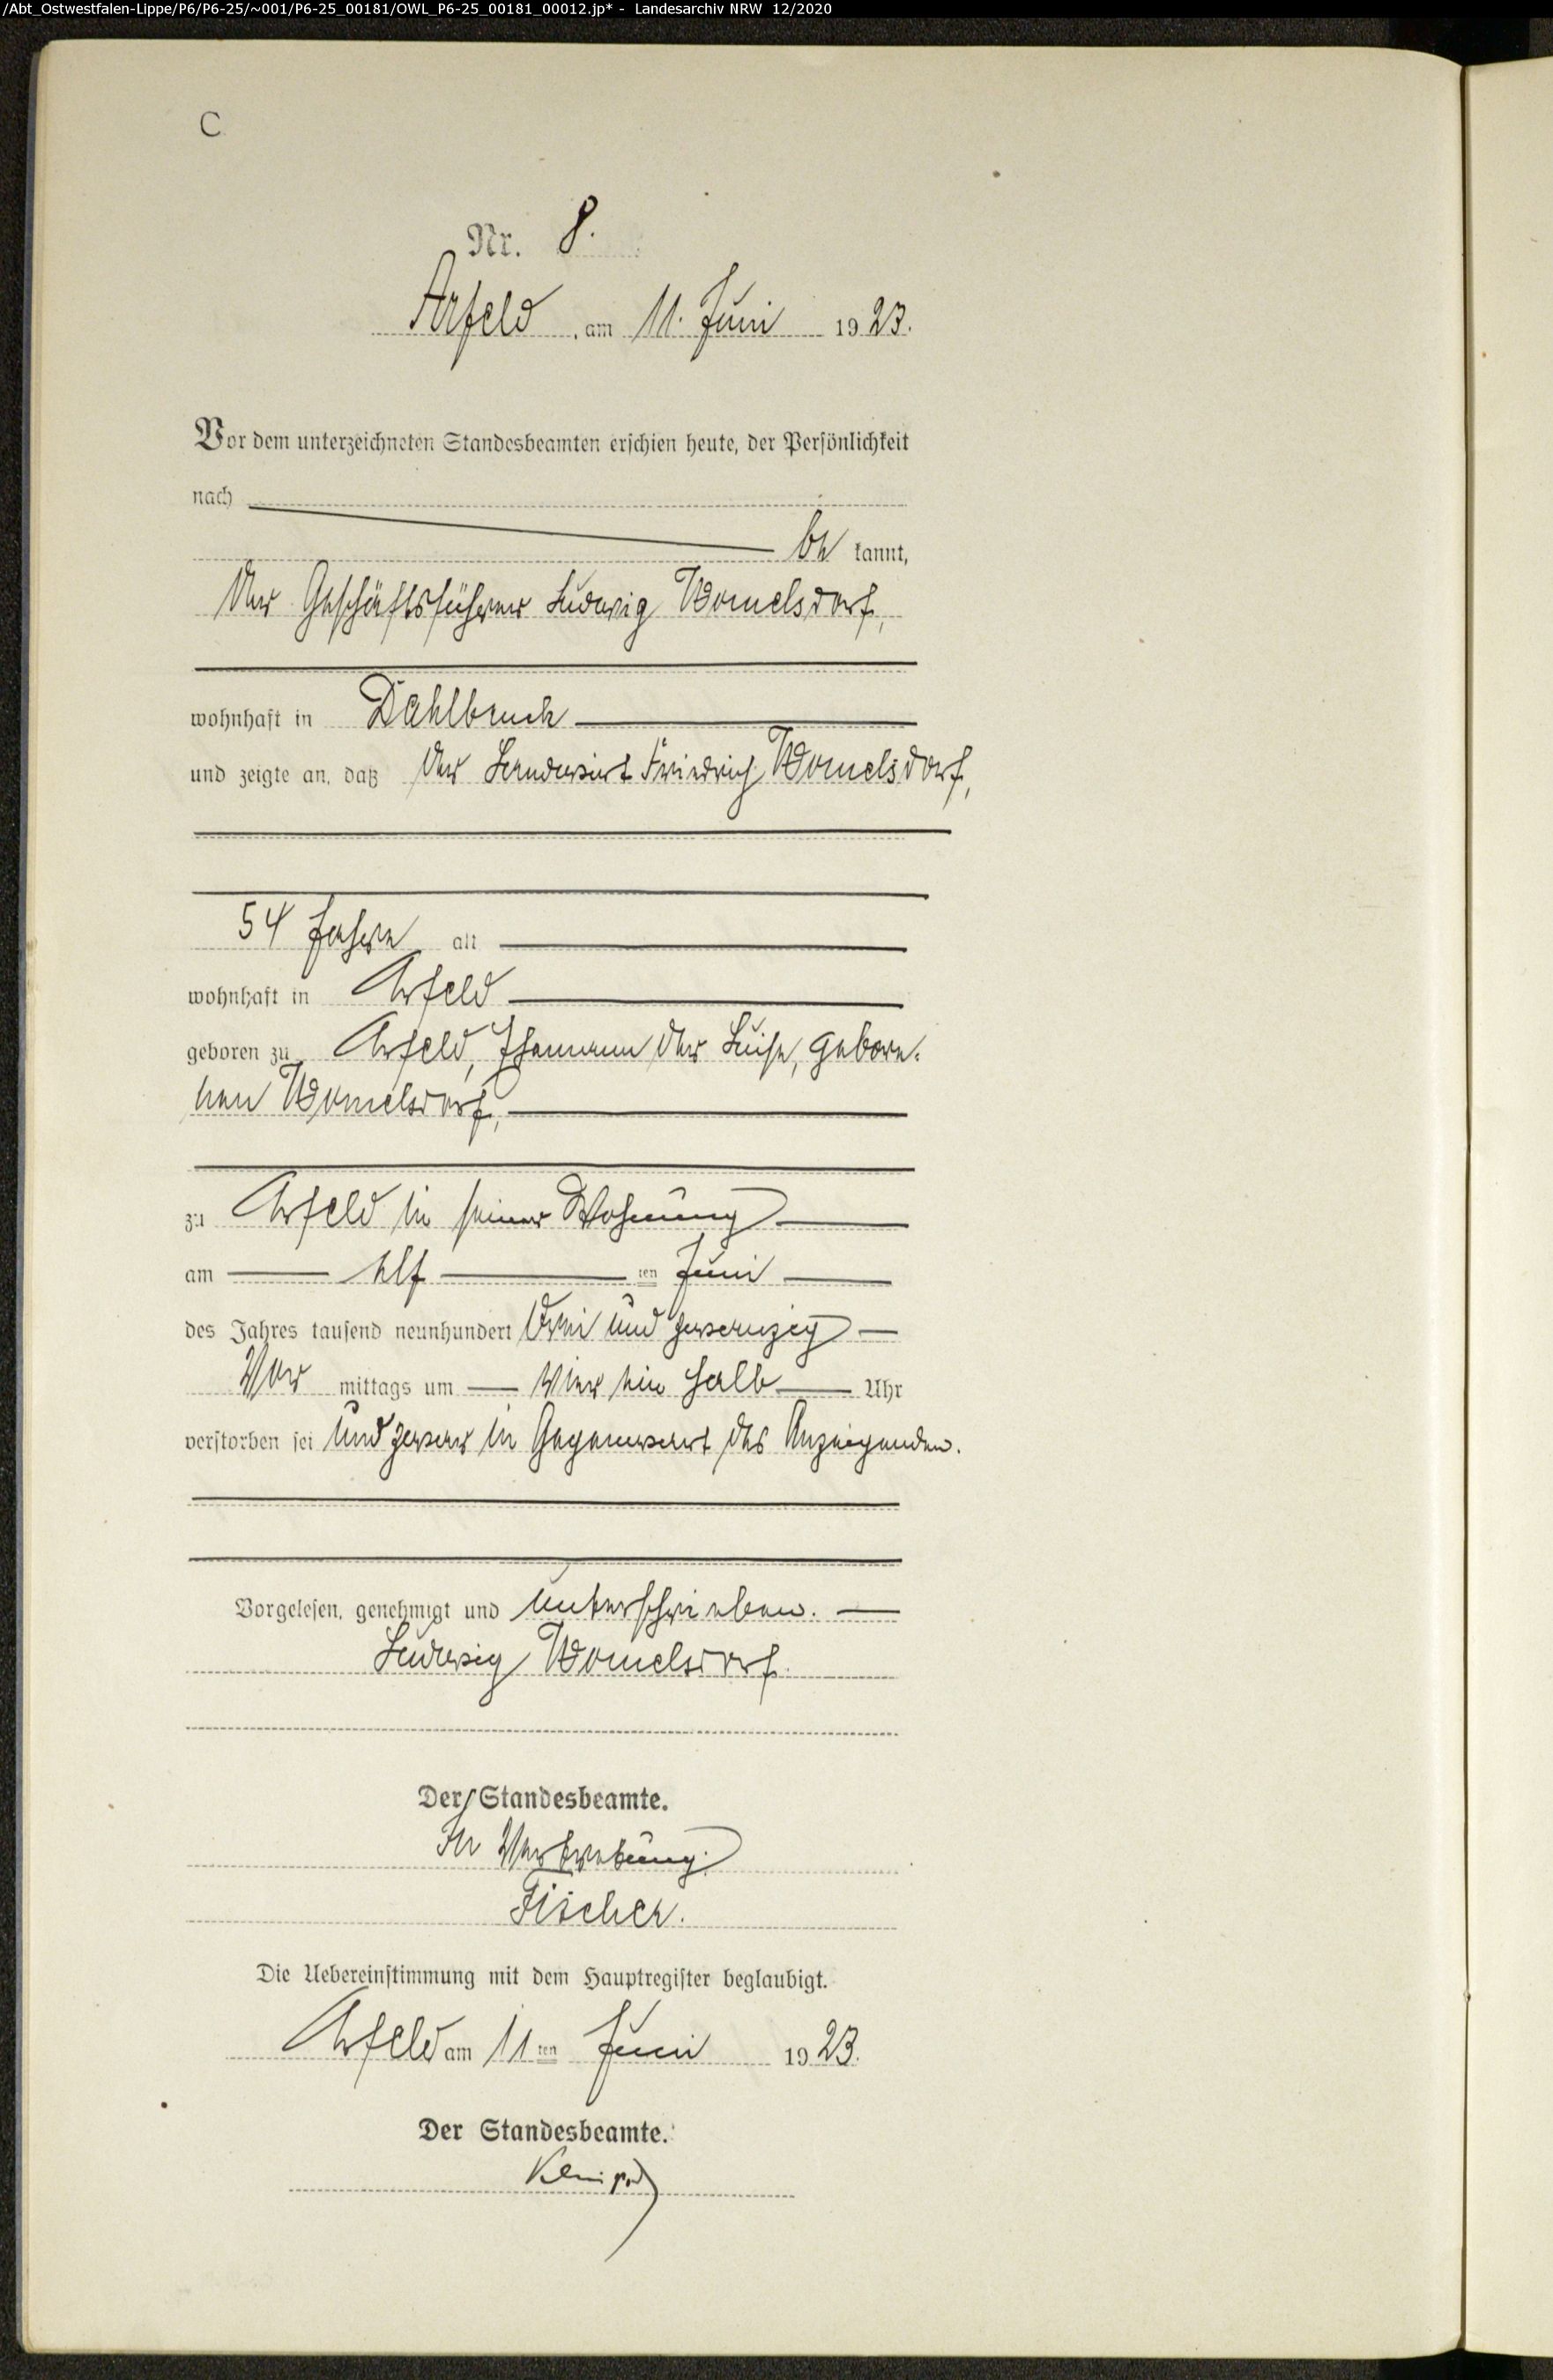 /Abt_Ostwestfalen-Lippe/P6/P6-25/~001/P6-25_00181/OWL_P6-25_00181_00012.jp* - Landesarchiv NRW 12/2020
C
Nr. 8.
Arfeld, am 11. Juni 1923.
Vor dem unterzeichneten Standesbeamten erschien heute, der Persönlichkeit
nach
be kannt,
der Geschäftsführer Ludwig Womelsdorf,
wohnhaft in Dahlbruch
und zeigte an, daß der Landwirt Friedrich Womelsdorf,
54 Jahre alt
wohnhaft in Arfeld
geboren zu Arfeld, Ehemann der Luise, gebore-
nen Womelsdorf,
zu Arfeld in seiner Wohnung
am elf ten Juni
des Jahres tausend neunhundert drei und zwanzig
Vor mittags um vier ein halb Uhr
verstorben sei und zwar in Gegenwart des Anzeigenden.
Vorgelesen, genehmigt und unterschrieben.
Ludwig Womelsdorf.
Der Standesbeamte.
In Vertretung:
Fischer.
Die Uebereinstimmung mit dem Hauptregister beglaubigt.
Arfeld am 11 ten Juni 1923.
Der Standesbeamte.